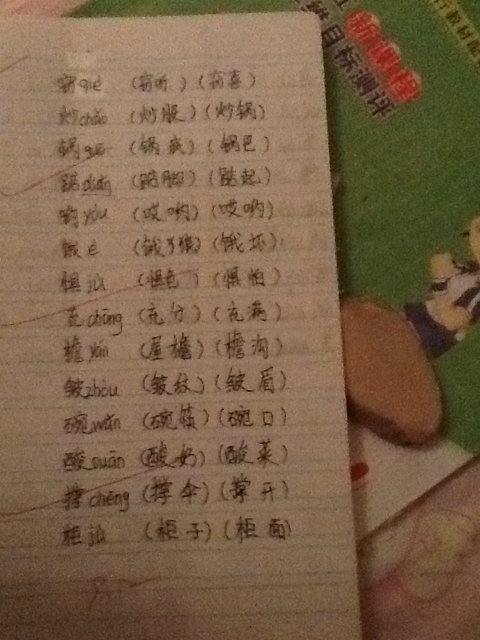 窃qiè (窃听) (窃喜)
炒chǎo (炒股) (炒锅)
锅guō (锅底) (锅巴)
踮diǎn (踮脚) (踮起)
哟yōu (哎哟) (哎哟)
饿è (饿坏)
惧jù (惧色) (惧怕)
充chōng (充分) (充满)
檐yán (屋檐) (檐沟)
皱zhòu (皱纹) (皱眉)
碗wǎn (碗筷) (碗口)
酸suān (酸奶) (酸菜)
撑chēng (撑伞) (撑开)
柜jǔ (柜子) (柜面)
新课程
目标测评